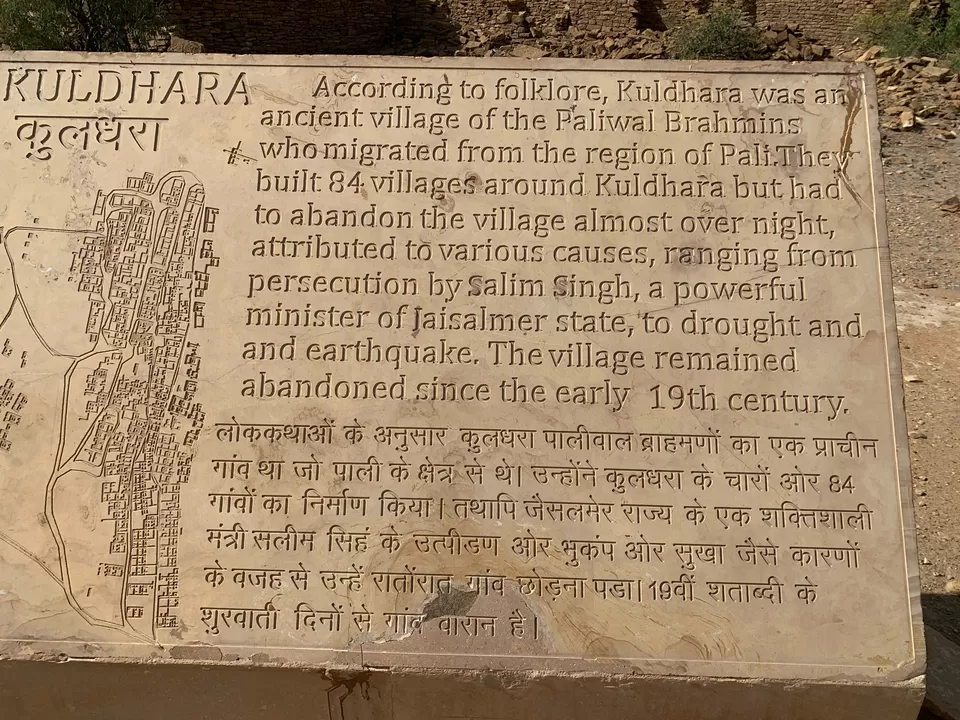 KULDHARA
कुलधरा
According to folklore, Kuldhara was an
ancient village of the Paliwal Brahmins
who migrated from the region of Pali.They
built 84 villages around Kuldhara but had
to abandon the village almost over night,
attributed to various causes, ranging from
persecution by Salim Singh, a powerful
minister of Jaisalmer state, to drought and
and earthquake. The village remained
abandoned since the early 19th century.
लोककथाओं के अनुसार कुलधरा पालीवाल ब्राहमणों का एक प्राचीन
गांव था जो पाली के क्षेत्र से थे। उन्होंने कुलधरा के चारों ओर 84
गांवों का निर्माण किया। तथापि जैसलमेर राज्य के एक शक्तिशाली
मंत्री सलीम सिहं के उत्पीडण ओर भुकंप ओर सुखा जैसे कारणों
के वजह से उन्हें रातोंरात गांव छोड़ना पडा। 19वीं शताब्दी के
शुरवाती दिनों से गांव वारान है।